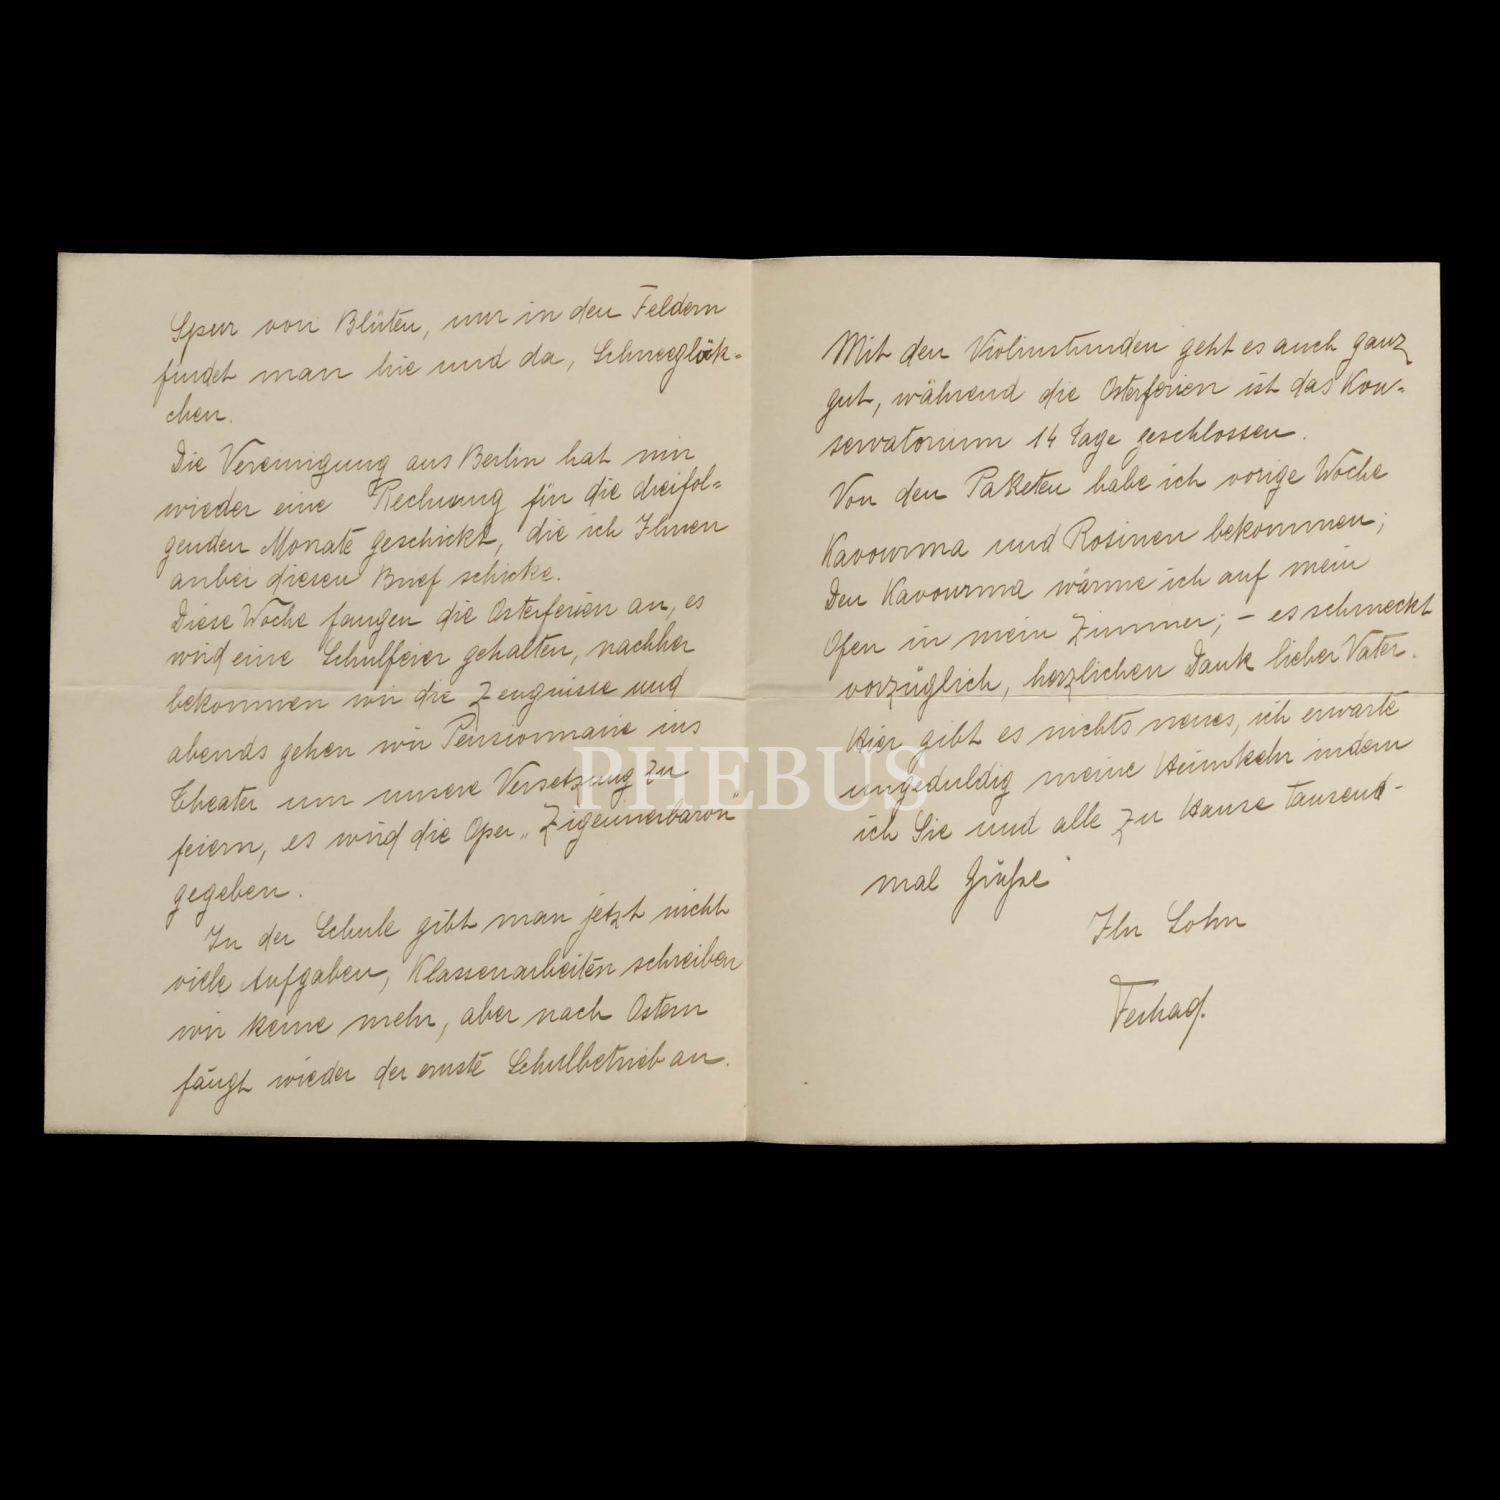 Spur von Blüten, nur in den Feldern
findet man hie und da, Schneeglök-
chen.
Die Vereinigung aus Berlin hat mir
wieder eine Rechnung für die dreifol-
genden Monate geschickt, die ich Ihnen
anbei diesen Brief schicke.
Diese Woche fangen die Osterferien an, es
wird eine Schulfeier gehalten, nachher
bekommen wir die Zeugnisse und
abends gehen wir Pensionnaire ins
Theater um unsere Versetzung zu
feiern, es wird die Oper „Zigeunerbaron"
gegeben.
In der Schule gibt man jetzt nicht
viele Aufgaben, Klassenarbeiten schreiben
wir keine mehr, aber nach Ostern
fängt wieder der ernste Schulbetrieb an.
Mit den Violinstunden geht es auch ganz
gut, während die Osterferien ist das Kon-
servatorium 14 Tage geschlossen.
Von den Paketen habe ich vorige Woche
Kavourma und Rosinen bekommen;
Den Kavourma wärme ich auf mein
Ofen in mein Zimmer; – es schmeckt
vorzüglich, herzlichen Dank lieber Vater.
Hier gibt es nichts neues, ich erwarte
ungeduldig meine Heimkehr indem
ich Sie und alle zu Hause tausend-
mal Grüße
Ihr Sohn
Ferhad.
PHEBUS